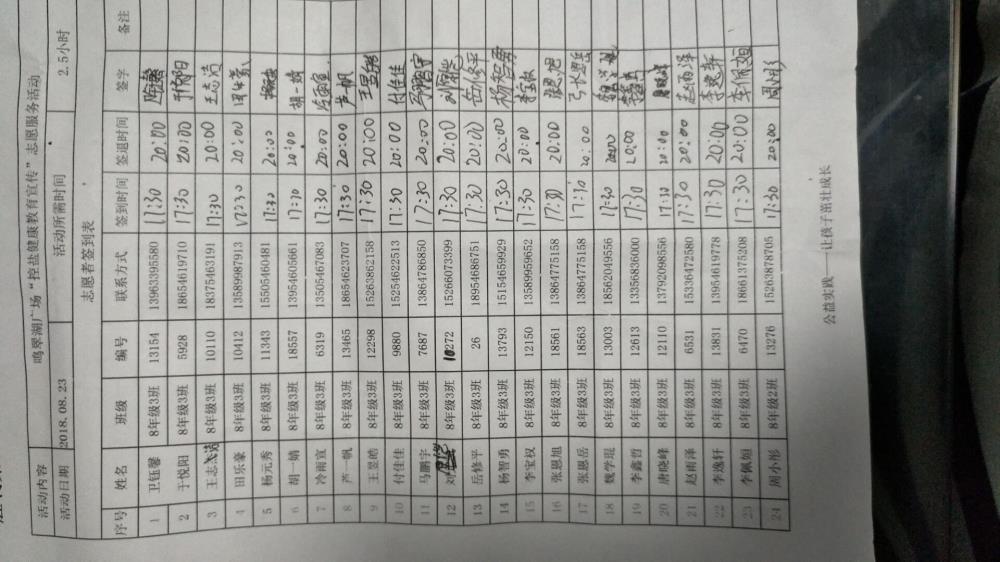 活动内容 鸣翠湖广场“控盐健康教育宣传”志愿服务活动
活动日期 2018.08.23 活动所需时间 2.5小时
志愿者签到表
序号 姓名 班级 编号 联系方式 签到时间 签退时间 签字 备注
1 卫钰馨 8年级3班 13154 13963395580 17:30 20:00
2 于悦阳 8年级3班 5928 18654619710 17:30 20:00 于悦阳
3 王志浩 8年级3班 10110 18375463191 17:30 20:00 王志浩
4 田乐豪 8年级3班 10412 13589987913 17:30 20:00 田乐豪
5 杨元秀 8年级3班 11343 15505460481 17:30 20:00
6 胡一婧 8年级3班 18557 13954605661 17:30 20:00 胡一婧
7 冷雨宣 8年级3班 6319 13505467083 17:30 20:00 冷雨宣
8 芦一帆 8年级3班 13465 18654623707 17:30 20:00 芦一帆
9 王昱皓 8年级3班 12298 15263862158 17:30 20:00 王昱皓
10 付佳佳 8年级3班 9880 15254622513 17:30 20:00 付佳佳
11 马鹏宇 8年级3班 7687 13864786850 17:30 20:00 马鹏宇
12 刘 8年级3班 10272 15266073399 17:30 20:00
13 岳修平 8年级3班 26 18954686751 17:30 20:00 岳修平
14 杨智勇 8年级3班 13793 15154659929 17:30 20:00 杨智勇
15 李宝权 8年级3班 12150 13589959652 17:30 20:00 李宝权
16 张恩旭 8年级3班 18561 13864775158 17:30 20:00 张恩旭
17 张恩岳 8年级3班 18563 13864775158 17:30 20:00
18 魏学琨 8年级3班 13003 18562049556 17:30 20:00
19 李鑫哲 8年级3班 12613 13356836000 17:30 20:00
20 唐晓峰 8年级3班 12110 13792098556 17:30 20:00 唐晓峰
21 赵雨泽 8年级3班 6531 15336472580 17:30 20:00 赵雨泽
22 李逸轩 8年级3班 13831 13954619778 17:30 20:00 李逸轩
23 李佩姮 8年级3班 6470 18661375208 17:30 20:00 李佩姮
24 周小彤 8年级2班 13276 15263878705 17:30 20:00 周小彤
公益实践——让孩子茁壮成长